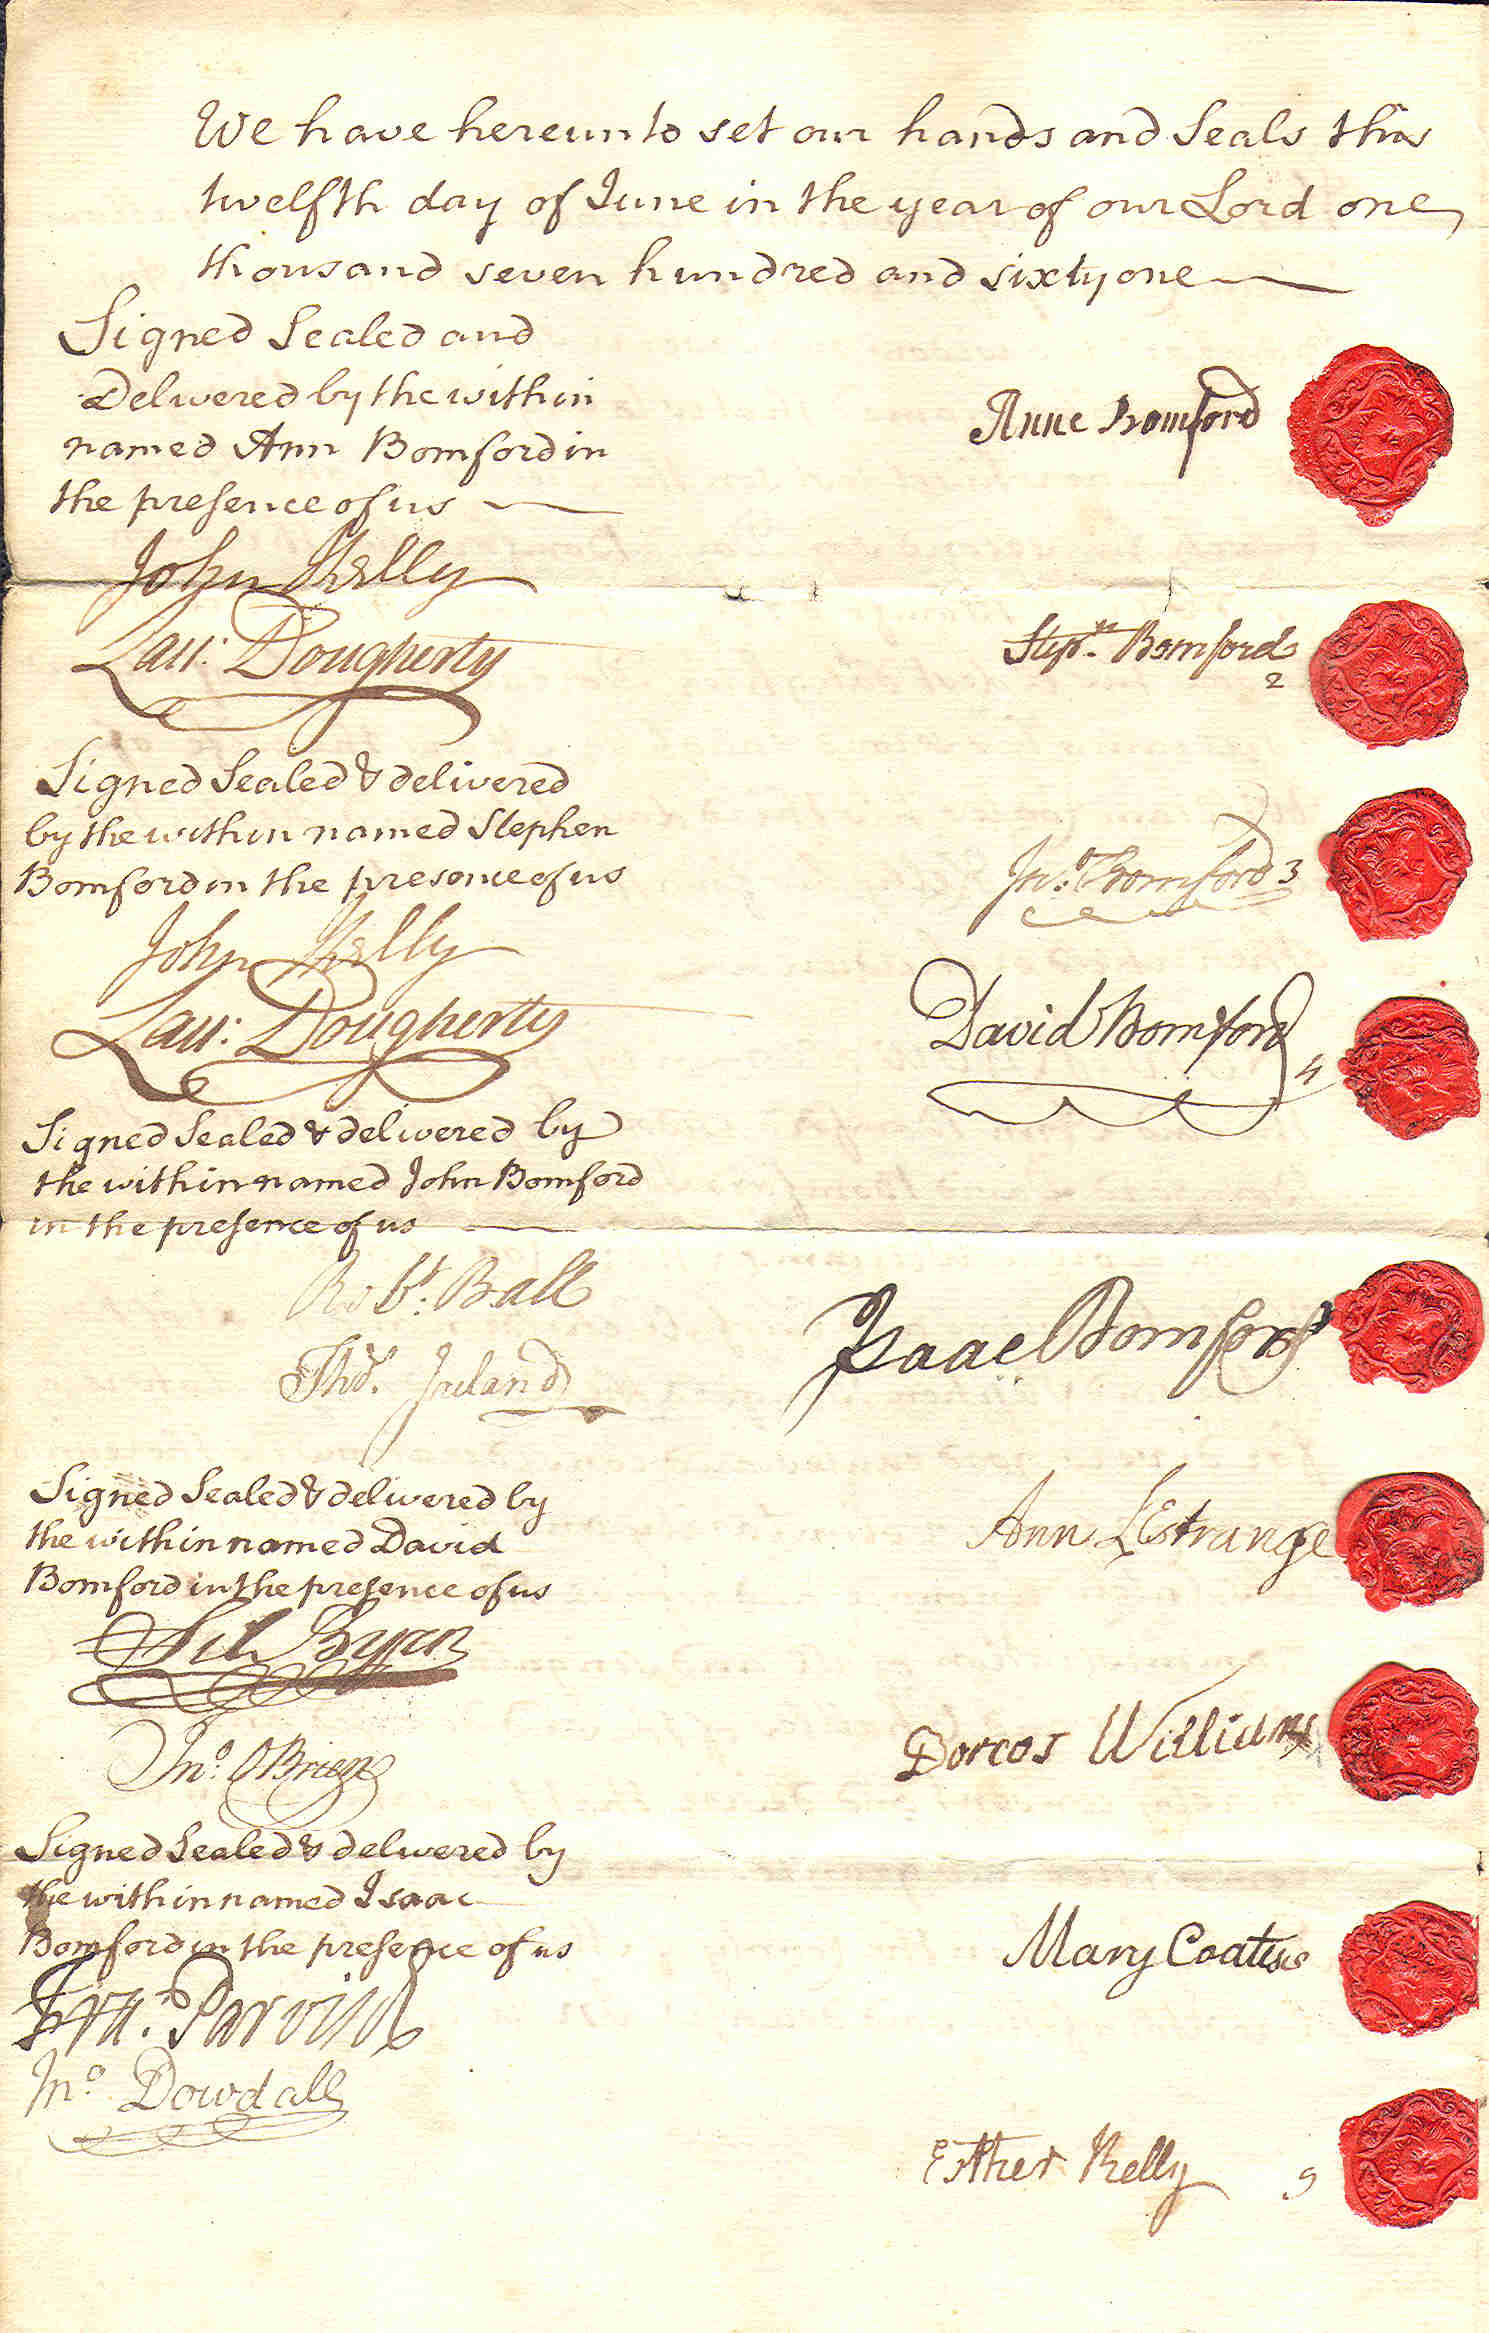 We have hereunto set our hands and Seals this
twelfth day of June in the year of our Lord one
thousand seven hundred and sixty one
Signed Sealed and
Delivered by the within
named Ann Bomford in
the presence of us
John Kelly
Lau: Dougherty
Anne Bomford
Stepn. Bomford
2
Signed Sealed & delivered
by the within named Stephen
Bomford in the presence of us
John Kelly
Lau: Dougherty
Jno. Bomford 3
David Bomford
4
Signed Sealed & delivered by
the within named John Bomford
in the presence of us
Robt. Ball
Thos. Ireland
Isaac Bomford
Signed Sealed & delivered by
the within named David
Bomford in the presence of us
Bryan
Jno. OBrien
Ann LEstrange
Dorcas Williams
Signed Sealed & delivered by
the within named Isaac
Bomford in the presence of us
Fra:
Jno. Dowdall
Mary Coates
Esther Kelly 9